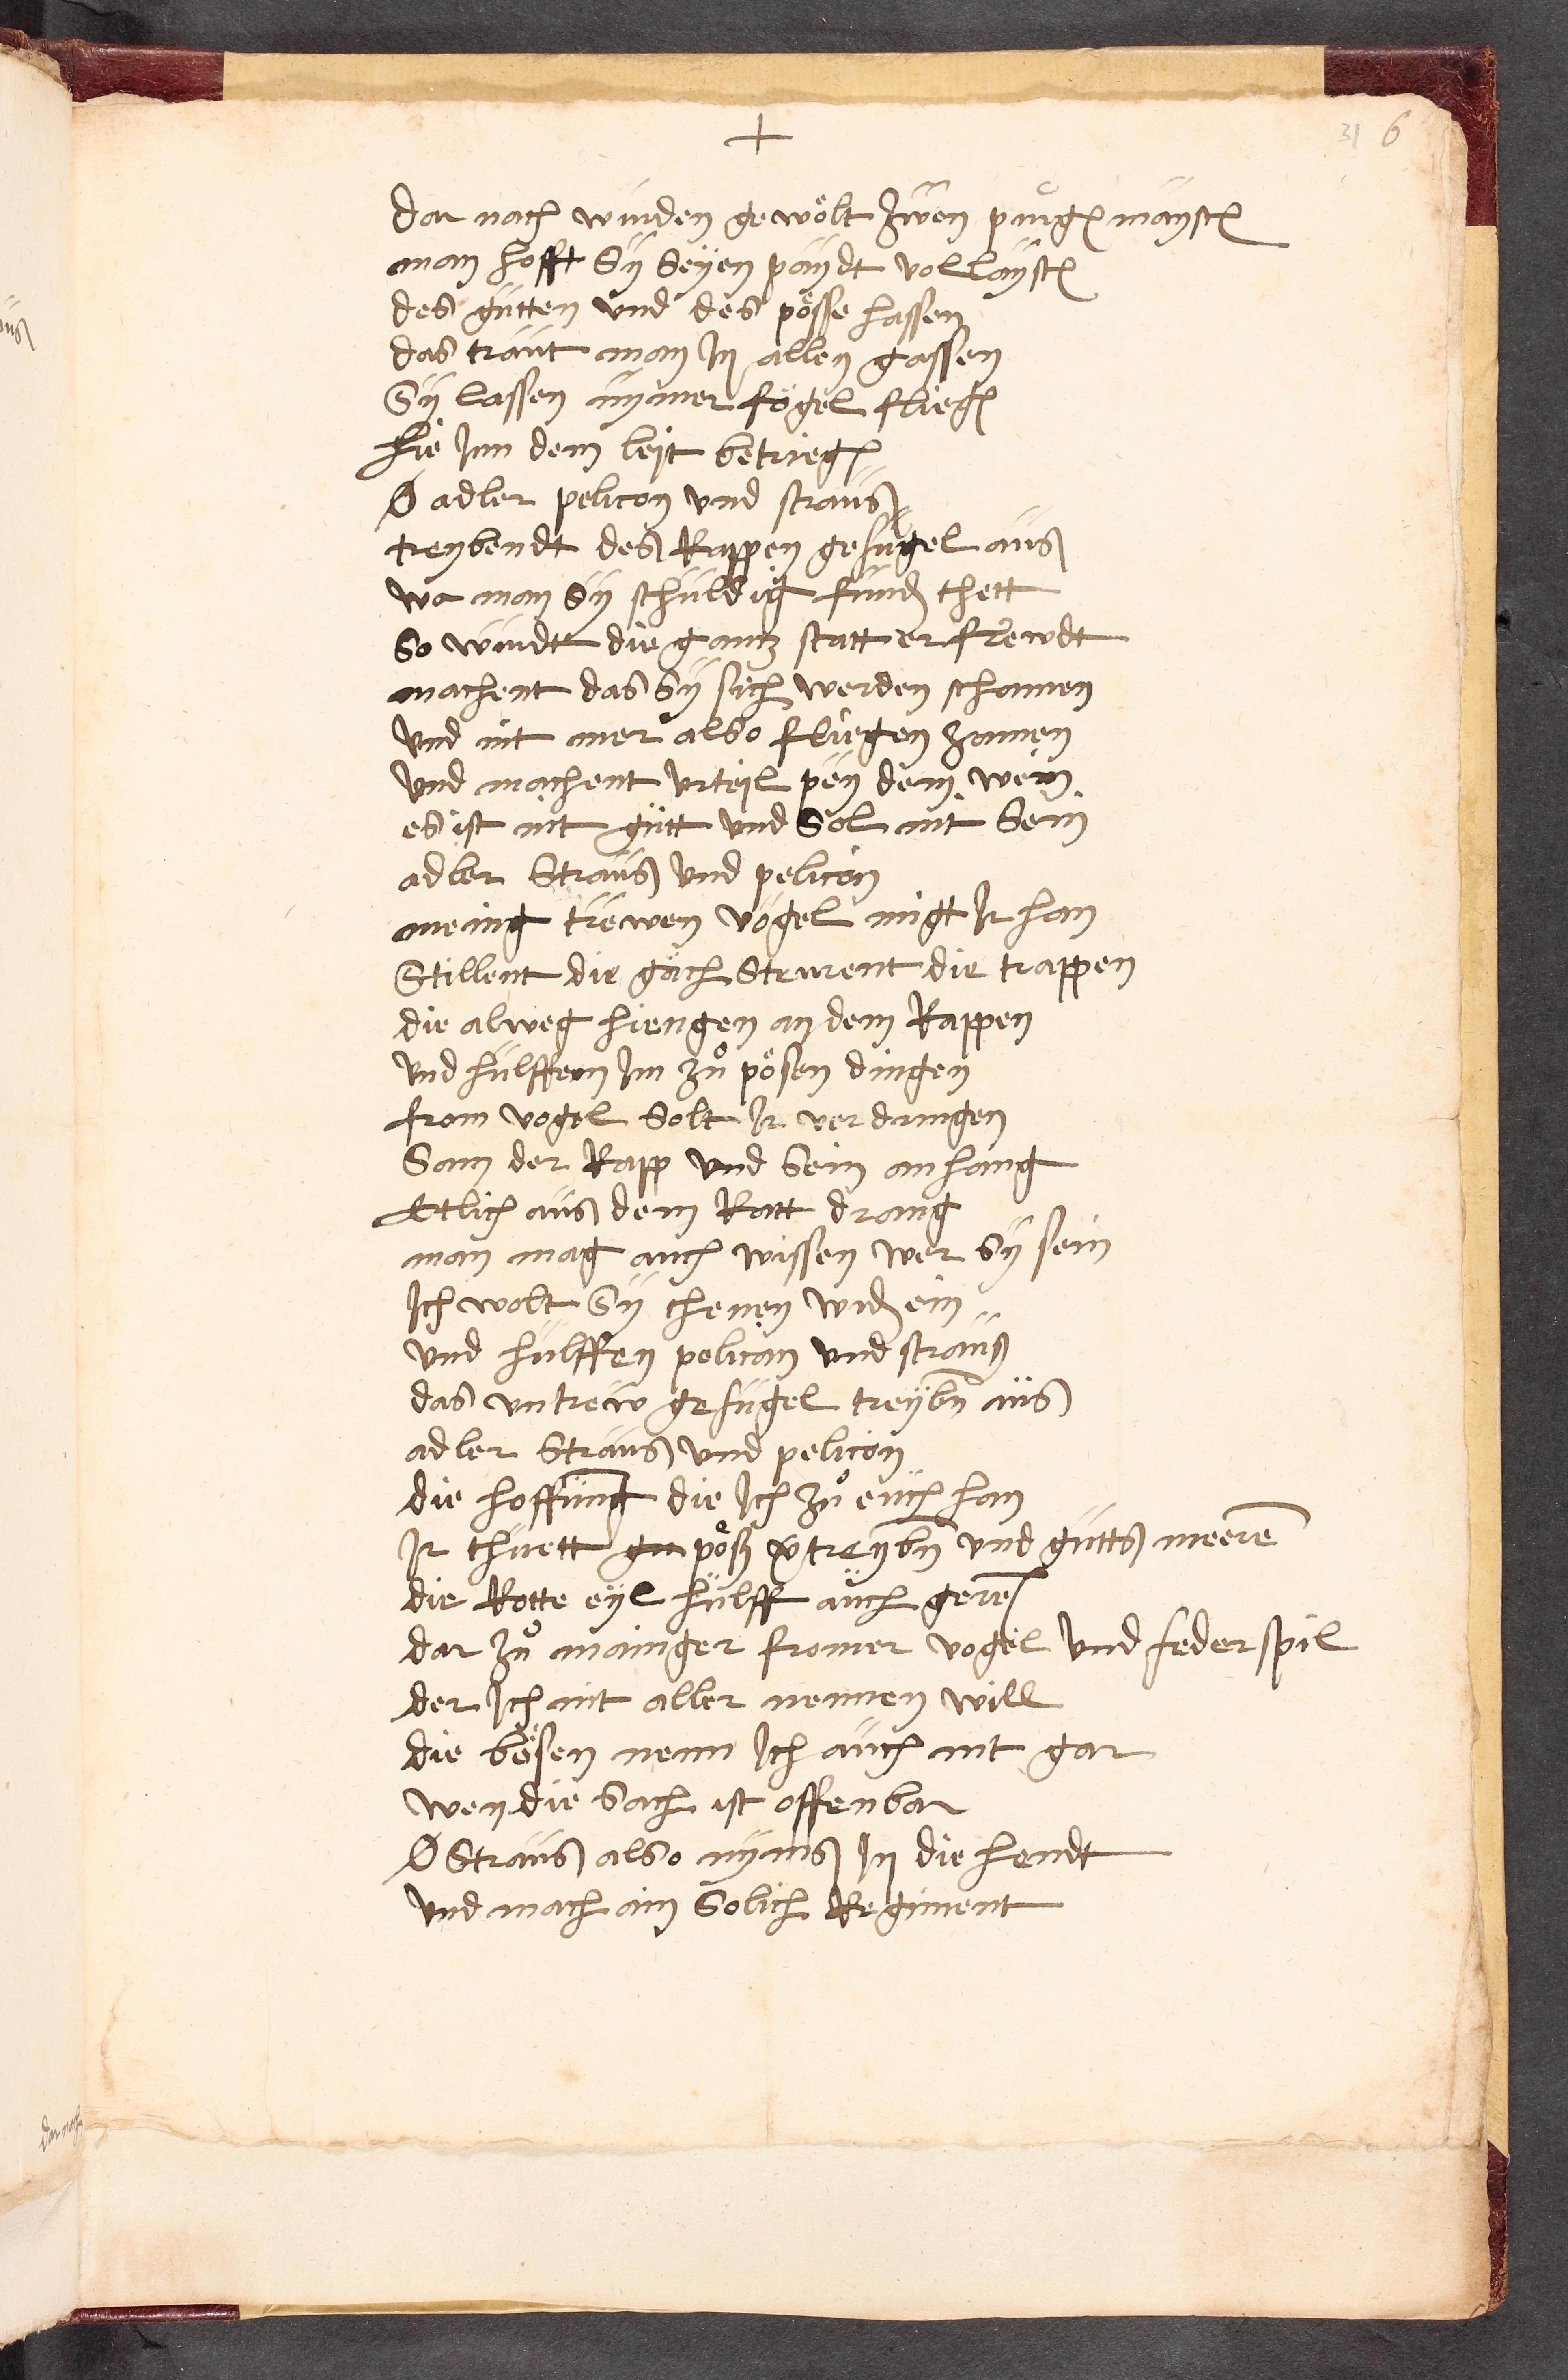 +
31 6
dar nach wurden gewölt zwen purg maÿst
man hofft Sÿ Seÿen paÿdt vol laÿst
des gutten vnd des pösse hassen
das traut man In allen gassen
Sÿ lassen nÿmer fögel flieg
hie Inn dem leÿt betrieg
O adler pelicon vnd strauß
treybendt des Rappen gefugel auß
wa man Sÿ schuldig fund thett
So wurdt die gantz statt erfrewdt
machent das Sÿ sich werden schamen
vnd nit mer also fliegen zamen
vnd machent vrteil peÿ dem wein
es ist nit gutt vnd Sol nit Sein
adler Strauß vnd pelicon
meing trewen vögel migt Ir han
Stillent die gäch Strurent die trappen
die alweg hiengen an dem Rappen
vnd hulffen Im zů pösen dingen
from vogel Solt Ir ver dringen
Sam der Rapp vnd Sein anhang
Etlich auß dem Ratt drang
man mag auch wissen wer Sÿ sein
Ich wolt Sÿ chenen wid ein
vnd hulffen pelican vnd strauß
das vntrew gefugel treÿbn auß
adler Strauß vnd pelicon
die hoffnung die Ich zů euch han
Ir thuett pöß vtreybn vnd gutts meere
die Rotte eÿl hulff auch gere
dar zů mainger fromer vogel vnd federspil
der Ich nit aller nennen will
die bösen nenn Ich auch nit gar
wen die Sach ist offenbar
O Strauß also nÿmß In die hendt
vnd mach ain Solich Regiment
dar nach